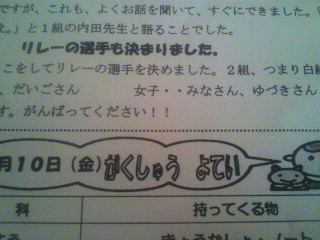 ですが、これも、よくお話を聞いて、すぐにできました。
え。」と1組の内田先生と語ることでした。
リレーの選手も決まりました。
こをしてリレーの選手を決めました。2組、つまり白組
、だいごさん　　女子・・みなさん、ゆづきさん
す。がんばってください!!
月10日(金)がくしゅう よてい
科　持ってくる物